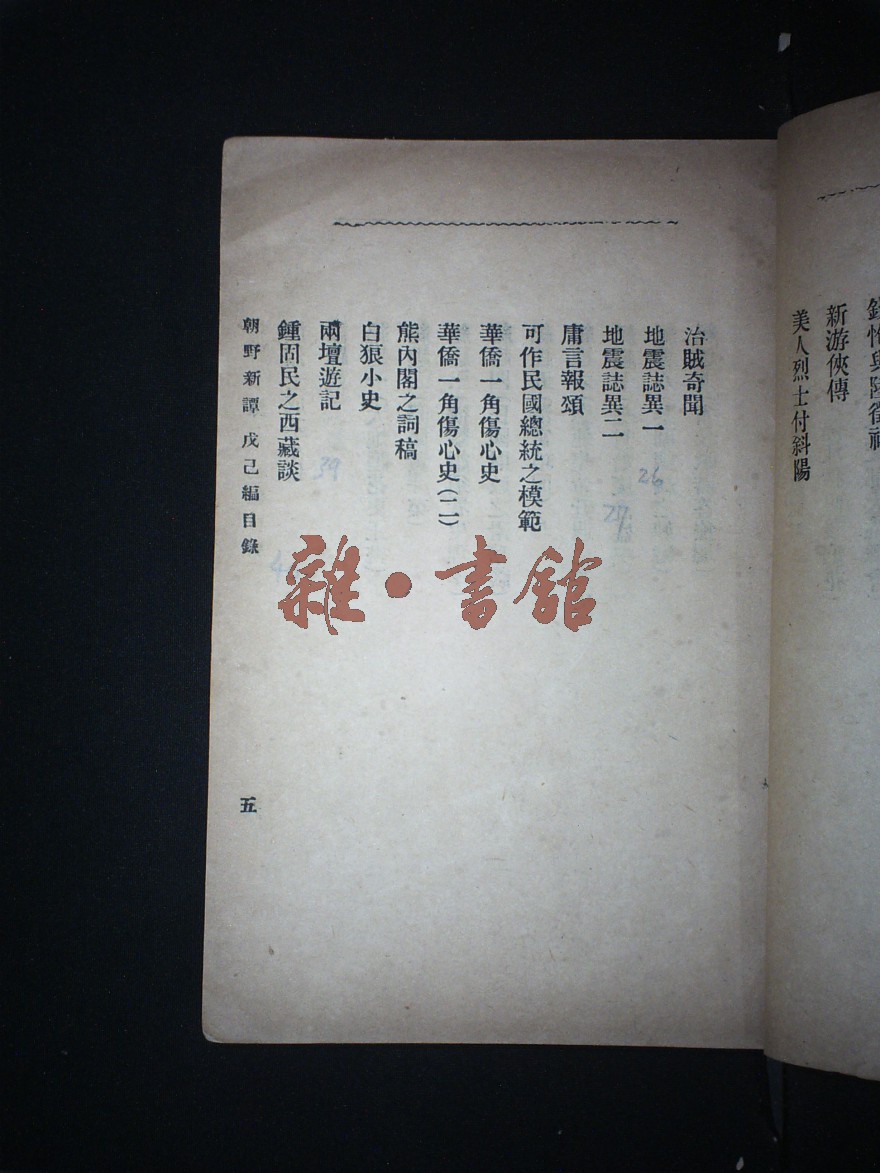 新游俠傳
美人烈士付斜陽
治賊奇聞
地震誌異一
地震誌異二
庸言報頌
可作民國總統之模範
華僑一角傷心史
華僑一角傷心史(二)
熊內閣之詞稿
白狼小史
兩壇遊記
鍾固民之西藏談
朝野新譚 戊己編目錄
五
26
27
39
雜·書館